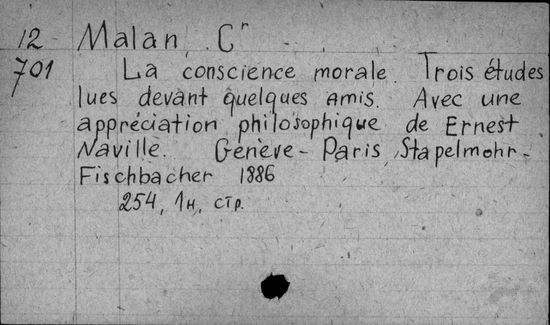 12 Malan, Cʳ
701 La conscience morale. Trois études
lues devant quelques amis. Avec une
appréciation philosophique de Ernest
Naville. Genève - Paris, Stapelmohr -
Fischbacher 1886
254, 1н, стр.